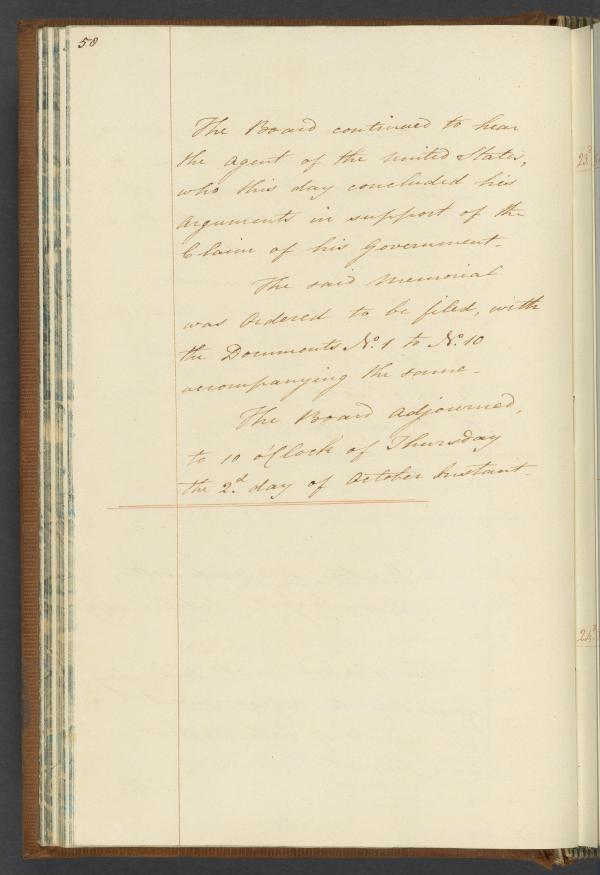 58
The Board continued to hear
the Agent of the United States,
who this day concluded his
Arguments in support of the
Claim of his Government.
The said Memorial
was Ordered to be filed, with
the Documents No. 1 to No. 10
accompanying the same.
The Board Adjourned,
to 10 o'Clock of Thursday
the 2d. day of October Instant.
23d
24th